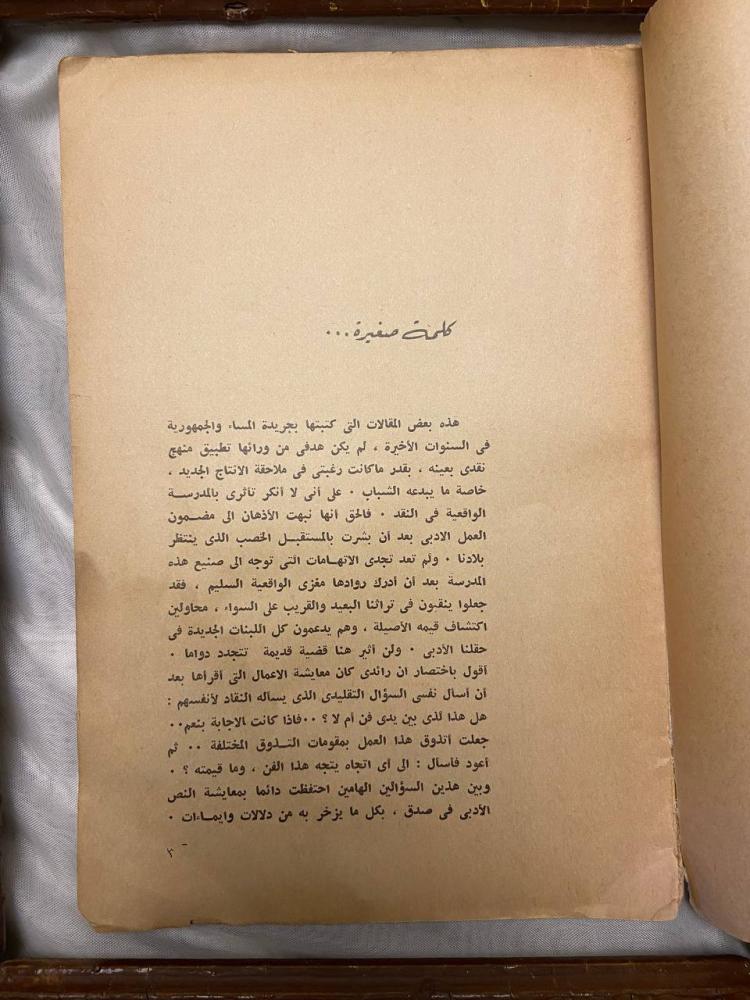 كلمة صغيرة ...
هذه بعض المقالات التى كتبتها بجريدة المساء والجمهورية
فى السنوات الأخيرة ، لم يكن هدفى من ورائها تطبيق منهج
نقدى بعينه ، بقدر ماكانت رغبتى فى ملاحقة الانتاج الجديد ،
خاصة ما يبدعه الشباب ٠ على أنى لا أنكر تأثرى بالمدرسة
الواقعية فى النقد ٠ فالحق أنها نبهت الأذهان الى مضمون
العمل الادبى بعد أن بشرت بالمستقبل الخصب الذى ينتظر
بلادنا ٠ ولم تعد تجدى الاتهامات التى توجه الى صنيع هذه
المدرسة بعد أن أدرك روادها مغزى الواقعية السليم ، فقد
جعلوا ينقبون فى تراثنا البعيد والقريب على السواء ، محاولين
اكتشاف قيمه الأصيلة ، وهم يدعمون كل اللبنات الجديدة فى
حقلنا الأدبى ٠ ولن أثير هنا قضية قديمة تتجدد دواما ٠
أقول باختصار ان رائدى كان معايشة الاعمال التى أقرأها بعد
أن أسأل نفسى السؤال التقليدى الذى يسأله النقاد لأنفسهم :
هل هذا لذى بين يدى فن أم لا ؟ ٠٠ فاذا كانت الاجابة بنعم ٠٠
جعلت أتذوق هذا العمل بمقومات التذوق المختلفة ٠٠ ثم
أعود فاسأل : الى أى اتجاه يتجه هذا الفن ، وما قيمته ؟ ٠
وبين هذين السؤالين الهامين احتفظت دائما بمعايشة النص
الأدبى فى صدق ، بكل ما يزخر به من دلالات وايماءات ٠
٣